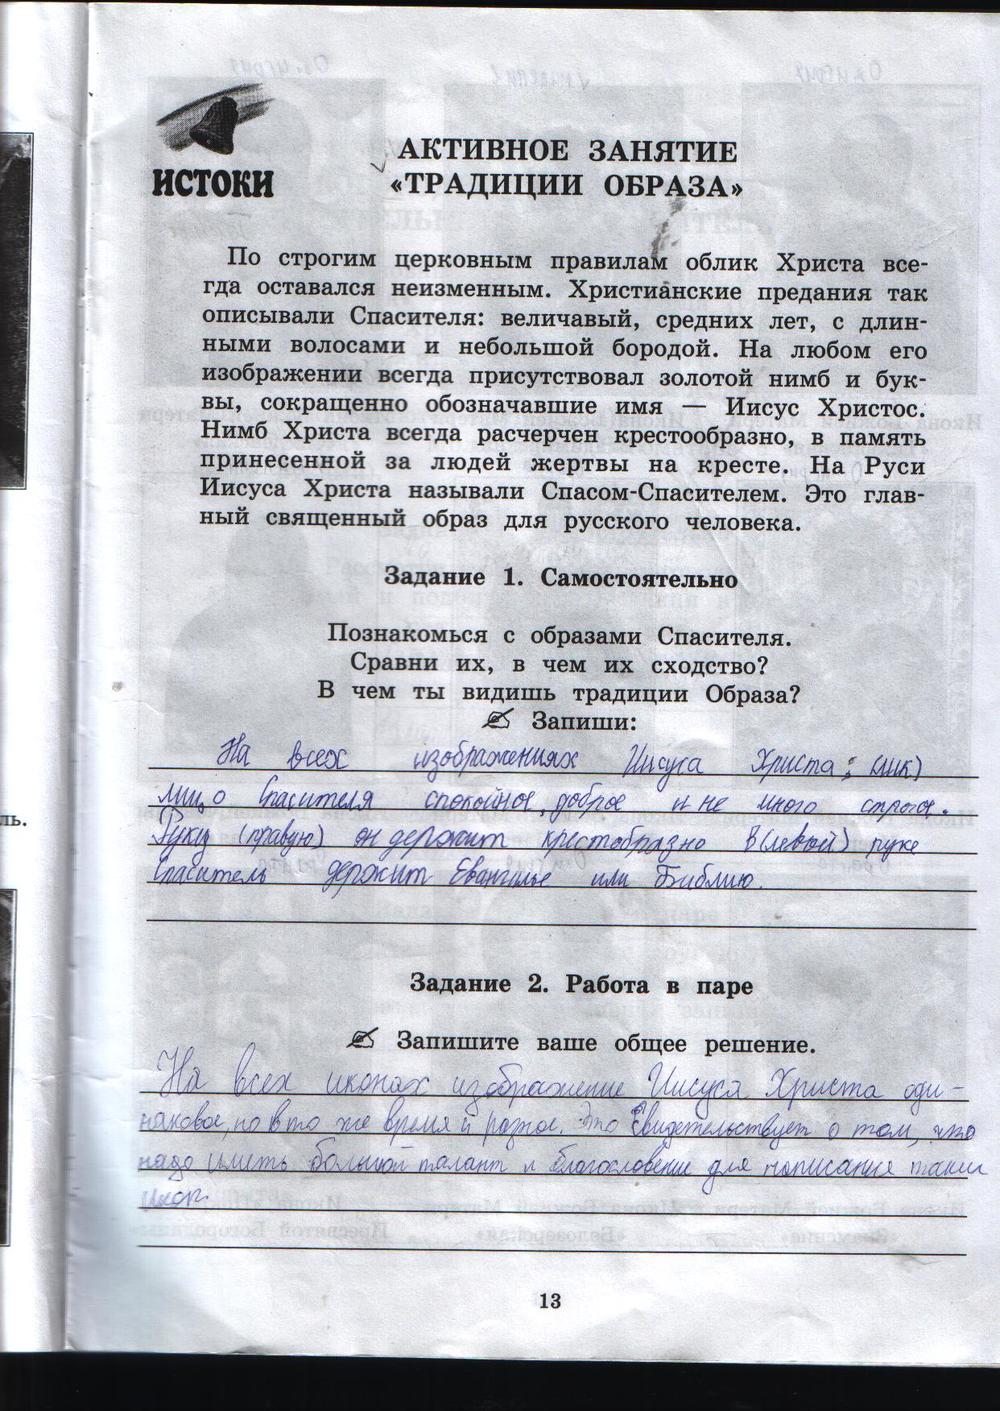 ИСТОКИ
АКТИВНОЕ ЗАНЯТИЕ
«ТРАДИЦИИ ОБРАЗА»
По строгим церковным правилам облик Христа все-
гда оставался неизменным. Христианские предания так
описывали Спасителя: величавый, средних лет, с длин-
ными волосами и небольшой бородой. На любом его
изображении всегда присутствовал золотой нимб и бук-
вы, сокращенно обозначавшие имя — Иисус Христос.
Нимб Христа всегда расчерчен крестообразно, в память
принесенной за людей жертвы на кресте. На Руси
Иисуса Христа называли Спасом-Спасителем. Это глав-
ный священный образ для русского человека.
Задание 1. Самостоятельно
Познакомься с образами Спасителя.
Сравни их, в чем их сходство?
В чем ты видишь традиции Образа?
Запиши:
На всех изображениях Иисуса Христа: (лик)
лицо Спасителя спокойное, доброе и не много строгое.
Руку (правую) он держит крестобразно в (левой) руке
Спаситель держит Евангилье или Библию.
Задание 2. Работа в паре
Запишите ваше общее решение.
На всех иконах изображение Иисуса Христа оди-
наковое, но в то же время и разное. Это Свидетельствует о том, что
надо иметь большой талант и благословение для написания таких
икон.
13
ль.